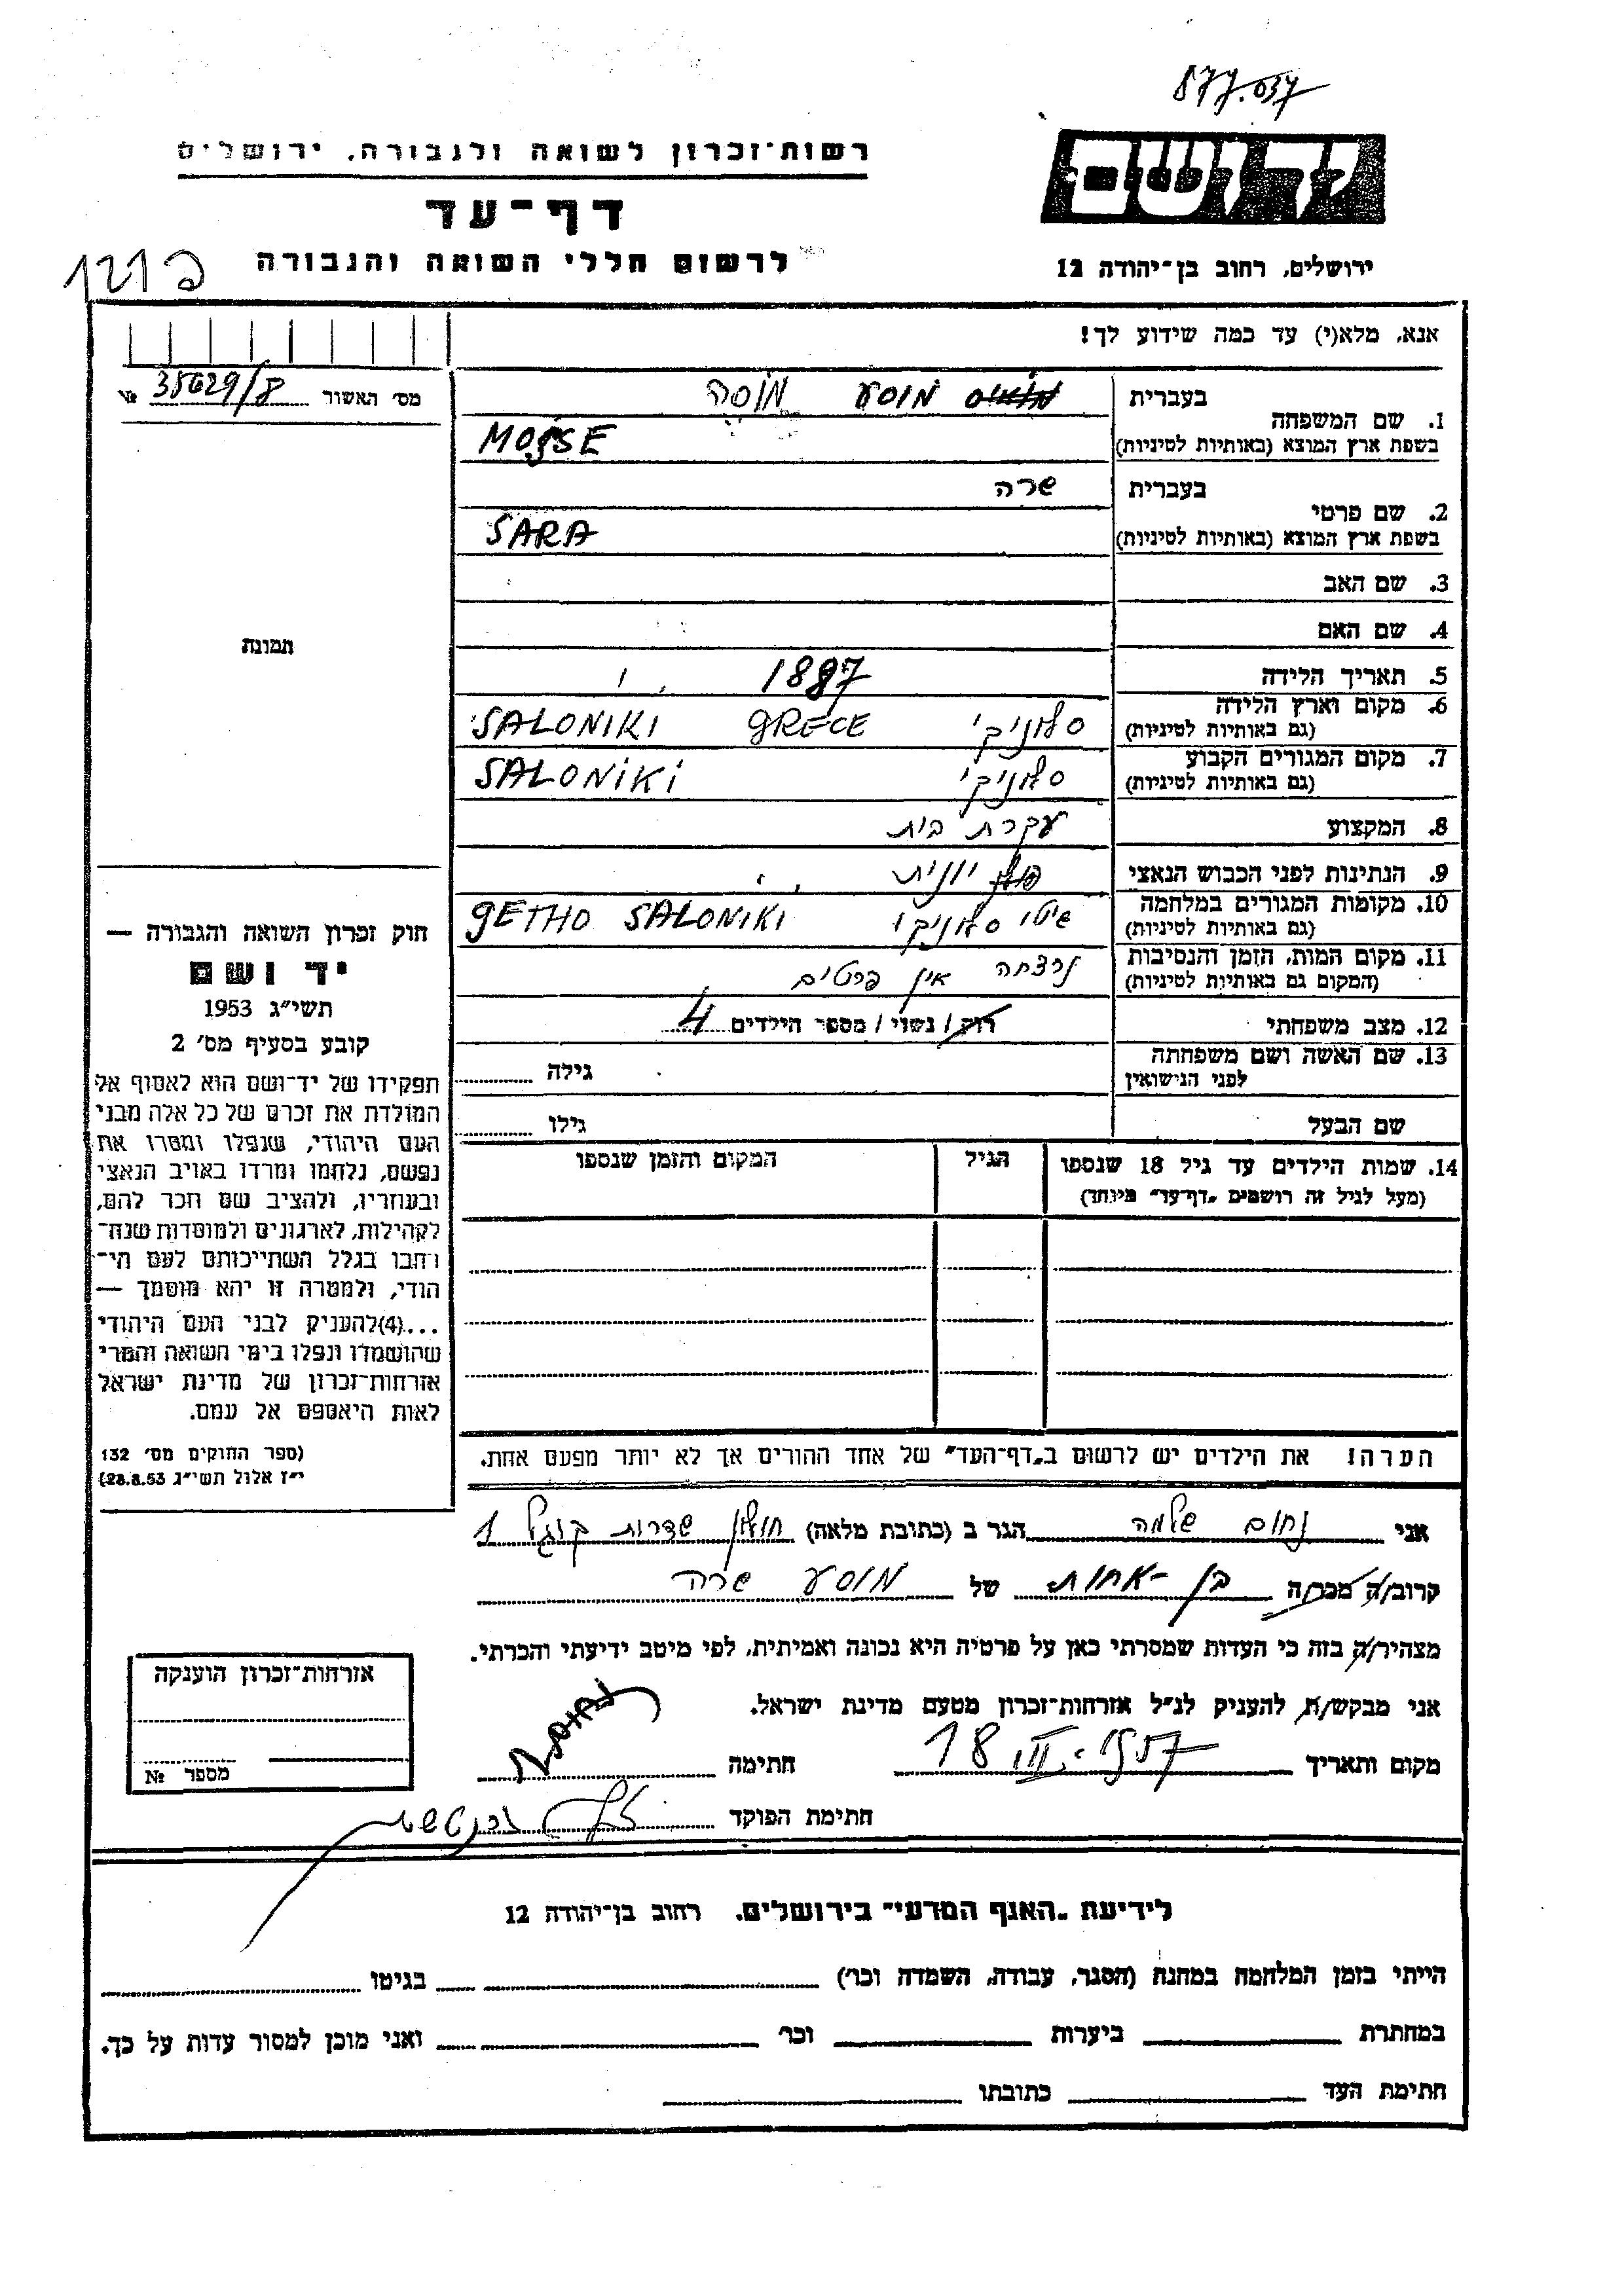 877.037
יד ושם
רשות־זכרון לשואה ולגבורה, ירושלים
דף־עד
לרשום חללי השואה והגבורה
ירושלים, רחוב בן־יהודה 12
אנא, מלא(י) עד כמה שידוע לך!
מס׳ האשור 35629/8 №
בעברית מוסע מוסה
1. שם המשפחה
בשפת ארץ המוצא (באותיות לטיניות) MOJSE
בעברית שרה
2. שם פרטי
בשפת ארץ המוצא (באותיות לטיניות) SARA
3. שם האב
4. שם האם
תמונה
5. תאריך הלידה 1887
6. מקום וארץ הלידה סלוניקי GRECE SALONIKI
(גם באותיות לטיניות)
7. מקום המגורים הקבוע סלוניקי SALONIKI
(גם באותיות לטיניות)
8. המקצוע עקרת בית
9. הנתינות לפני הכבוש הנאצי יוונית
10. מקומות המגורים במלחמה גיטו סלוניקי GETHO SALONIKI
(גם באותיות לטיניות)
11. מקום המות, הזמן והנסיבות נרצחה אין פרטים
(המקום גם באותיות לטיניות)
12. מצב משפחתי רוק / נשוי / מספר הילדים 4
13. שם האשה ושם משפחתה גילה
לפני הנישואין
שם הבעל גילו
14. שמות הילדים עד גיל 18 שנספו הגיל המקום והזמן שנספו
(מעל לגיל זה רושמים „דף־עד״ מיוחד)
חוק זכרון השואה והגבורה —
יד ושם
תשי״ג 1953
קובע בסעיף מס׳ 2
תפקידו של יד־ושם הוא לאסוף אל
המולדת את זכרם של כל אלה מבני
העם היהודי, שנפלו ומסרו את
נפשם, נלחמו ומרדו באויב הנאצי
ובעוזריו, ולהציב שם וזכר להם,
לקהילות, לארגונים ולמוסדות שנח־
רבו בגלל השתייכותם לעם הי־
הודי, ולמטרה זו יהא מוסמך —
...(4)להעניק לבני העם היהודי
שהושמדו ונפלו בימי השואה והמרי
אזרחות־זכרון של מדינת ישראל
לאות היאספם אל עמם.
(ספר החוקים מס׳ 132
י״ז אלול תשי״ג 28.8.53)
הערה! את הילדים יש לרשום ב„דף־העד״ של אחד ההורים אך לא יותר מפעם אחת.
אני נחום שלמה הגר ב (כתובת מלאה) חולון שדרות קוגל 1
קרוב/ה מכר/ה בן-אחות של מוסע שרה
מצהיר/ה בזה כי העדות שמסרתי כאן על פרטיה היא נכונה ואמיתית, לפי מיטב ידיעתי והכרתי.
אני מבקש/ת להעניק לנ״ל אזרחות־זכרון מטעם מדינת ישראל.
מקום ותאריך 18 III. 1957 חתימה
חתימת הפוקד
אזרחות־זכרון הוענקה
מספר №
לידיעת „האגף המדעי״ בירושלים. רחוב בן־יהודה 12
הייתי בזמן המלחמה במחנה (הסגר, עבודה, השמדה וכו׳) בגיטו
במחתרת ביערות וכו׳ ואני מוכן למסור עדות על כך.
חתימת העד כתובתו